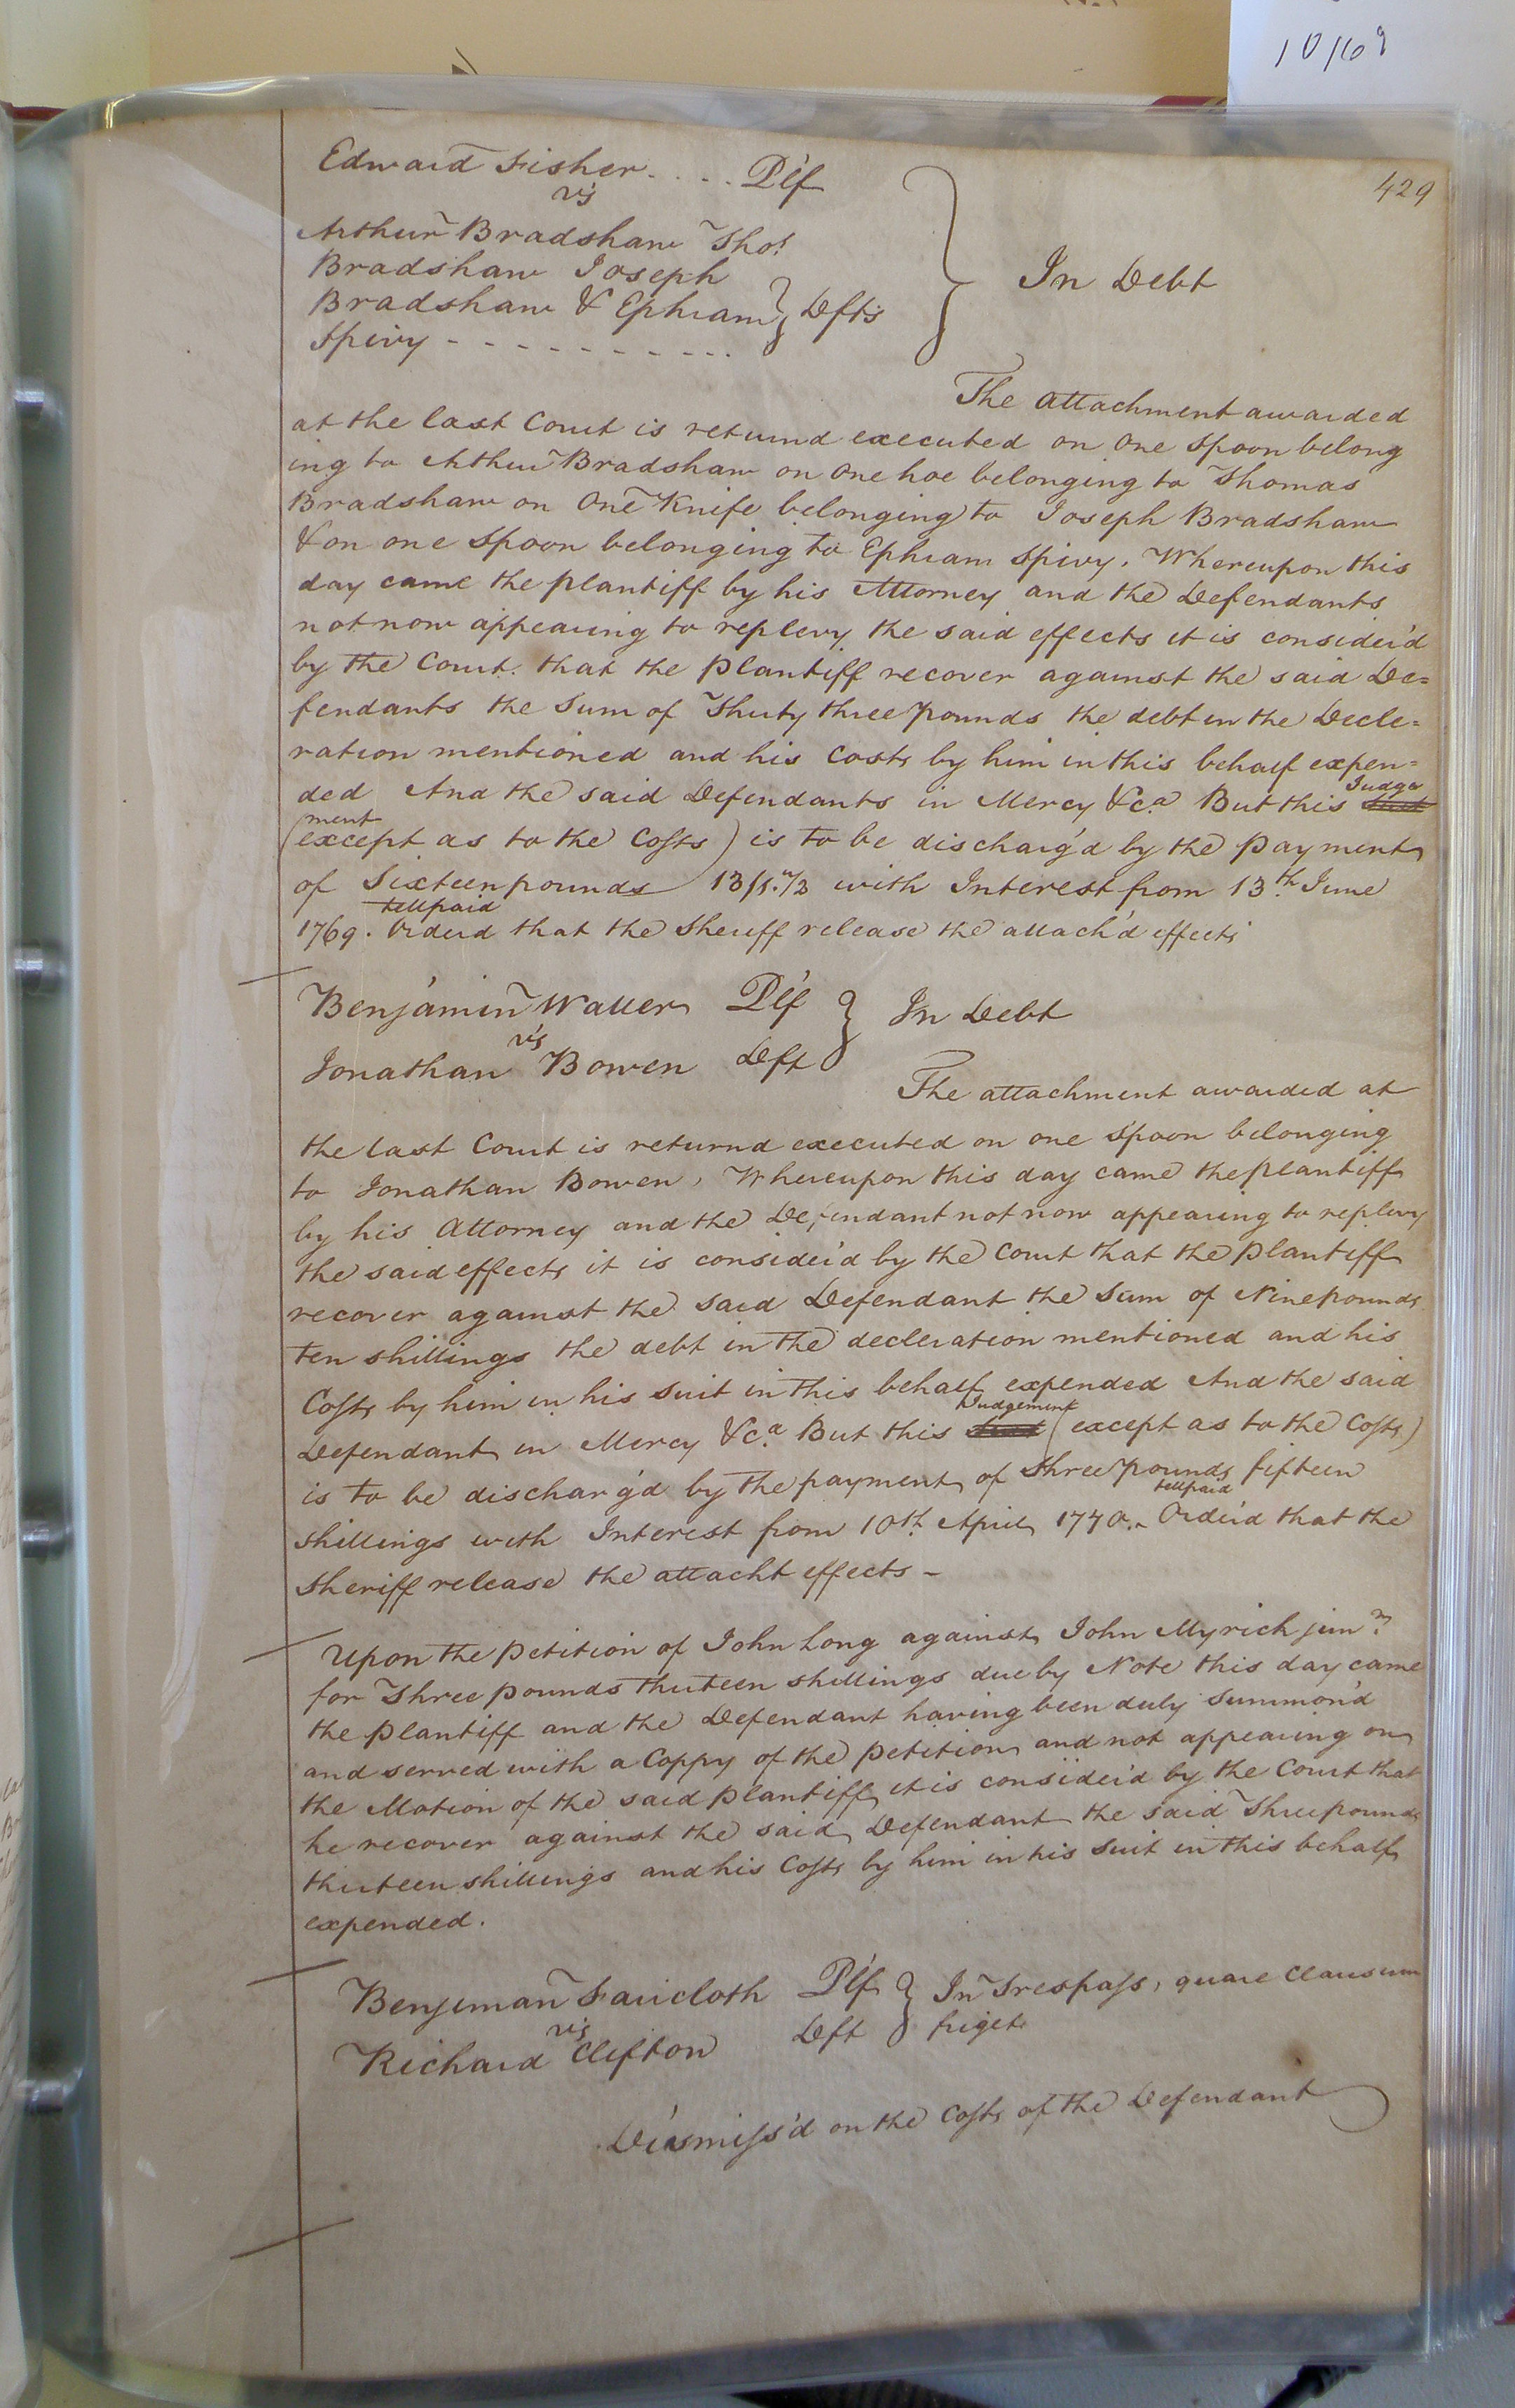 10/69
429
Edward Fisher. . . . . Plf
vs
Arthur Bradshaw Thos.
Bradshaw Joseph
Bradshaw & Ephram } Defts } In Debt
Spivy - - - - - - - - - - .
The attachment awarded
at the last Court is returnd executed on one Spoon belong
ing to Arthur Bradshaw on one hoe belonging to Thomas
Bradshaw on One Knife belonging to Joseph Bradshaw
& on one Spoon belonging to Ephram Spivy. Whereupon this
day came the plantiff by his Attorney and the Defendants
not now appearing to replevy the said effects it is consider'd
by the Court. that the plantiff recover against the said De=
fendants the Sum of Thirty three pounds the debt in the Decle=
ration mentioned and his Costs by him in this behalf expen=
ded And the said Defendants in Mercy &c.a But this Judge
ment
(except as to the Costs) is to be discharg'd by the payment
of Sixteen pounds 13/5.½ with Interest from 13th June
till paid
1769. Orderd that the Sheriff release the attach'd effects
Benjamin Waller Plf } In Debt
vs
Jonathan Bowen Deft
The attachment awarded at
the last Court is returnd executed on one Spoon belonging
to Jonathan Bowen, Whereupon this day came the plantiff
by his Attorney and the Defendant not now appearing to replevy
the said effects it is consider'd by the Court that the plantiff
recover against the said Defendant the Sum of Nine pounds
Ten shillings the debt in the decleration mentioned and his
Costs by him in his Suit in this behalf expended And the said
Judgement
Defendant in Mercy &c.a But this (except as to the Costs)
is to be discharg'd by the payment of three pounds fifteen
till paid
shillings with Interest from 10th. April 1770.. Order'd that the
Sheriff release the attacht effects -
Upon the Petition of John Long against John Myrick junr.
for Three pounds thirteen shillings due by Note this day came
the plantiff and the Defendant having been duly Summon'd
and served with a Coppy of the petition and not appearing on
the Motion of the said plantiff it is consider'd by the Court that
he recover against the said Defendant the said Three pounds
thirteen shillings and his Costs by him in his Suit in this behalf
expended.
Benjeman Faircloth Plf } In Trespass, quare Clausum
vs
Richard Clifton Deft } friget
Dismiss'd on the Costs of the Defendant